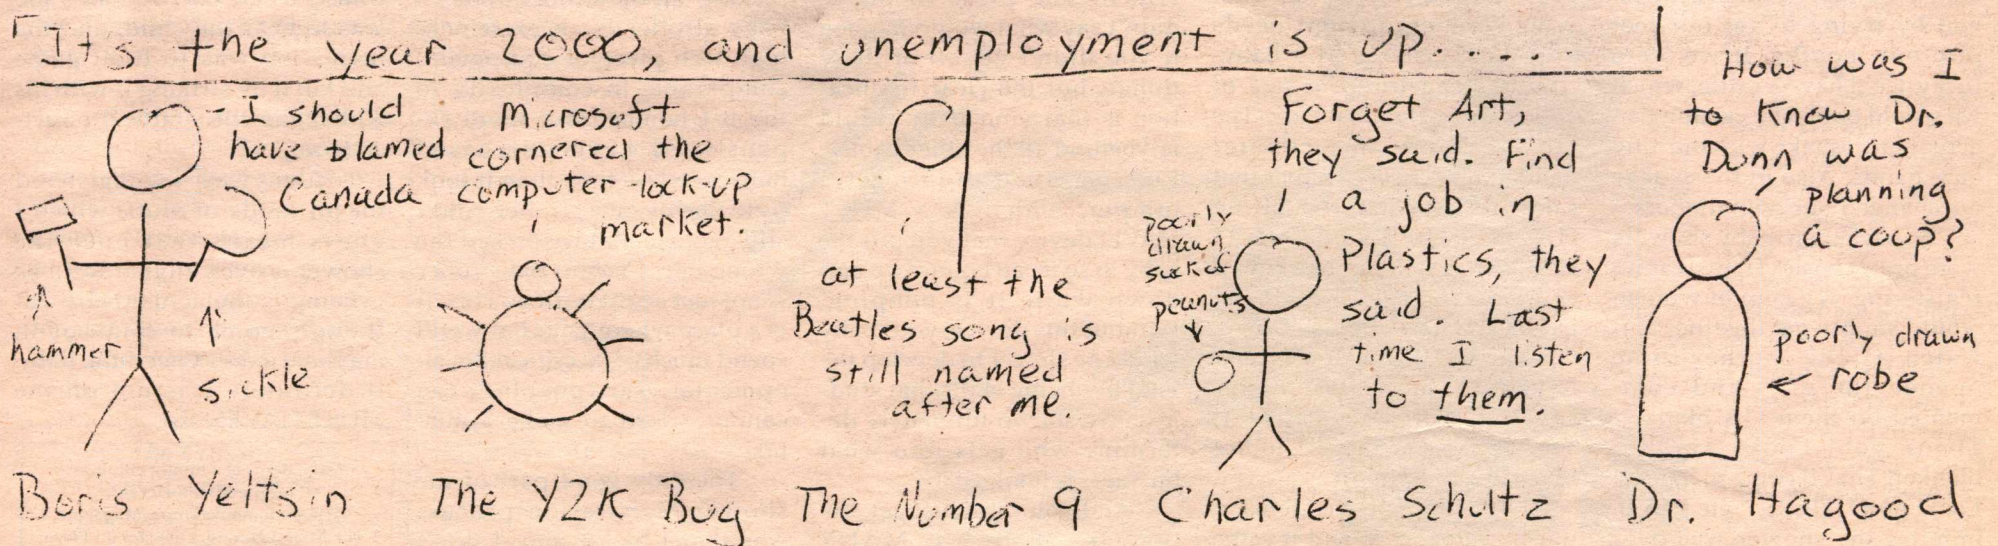 It's the year 2000, and unemployment is up.....
I should
have blamed
Canada
hammer
sickle
Boris Yeltsin
Microsoft
cornered the
computer-lock-up
market.
The Y2K Bug
9
at least the
Beatles song is
still named
after me.
The Number 9
Forget Art,
they said. Find
a job in
Plastics, they
said. Last
time I listen
to them.
poorly
drawn
sack of
peanuts
Charles Schultz
How was I
to know Dr.
Dunn was
planning
a coup?
poorly drawn
robe
Dr. Hagood